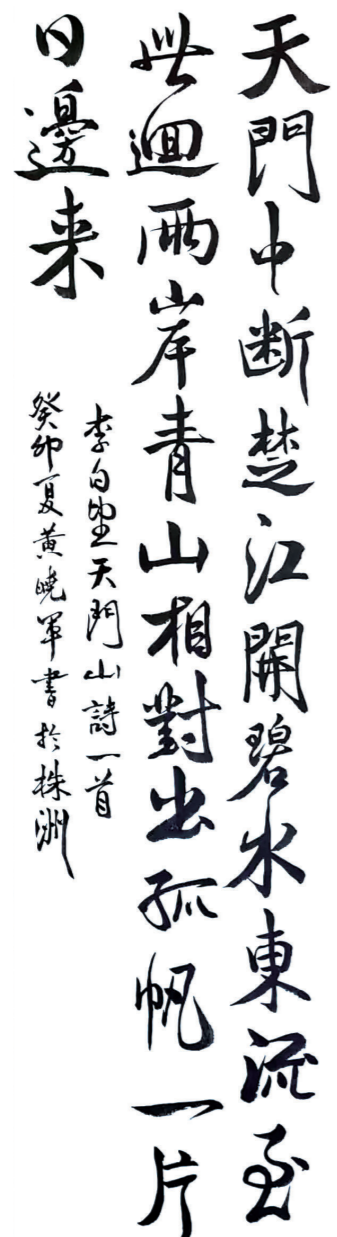 天門中断楚江開碧水東流至
此迴兩岸青山相對出孤帆一片
日邊来
李白望天門山詩一首
癸卯夏黃曉軍書於株洲